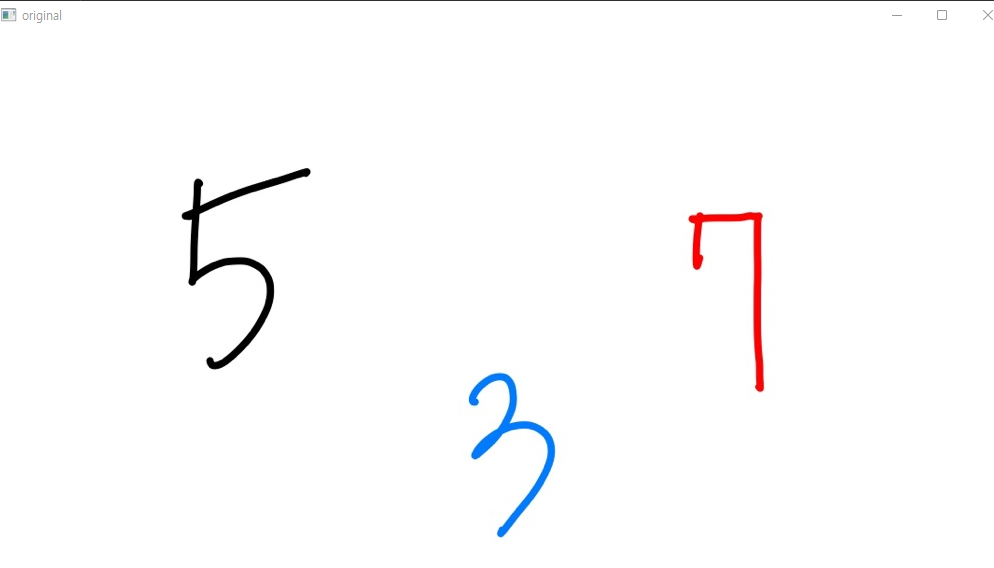 original
5 7
3